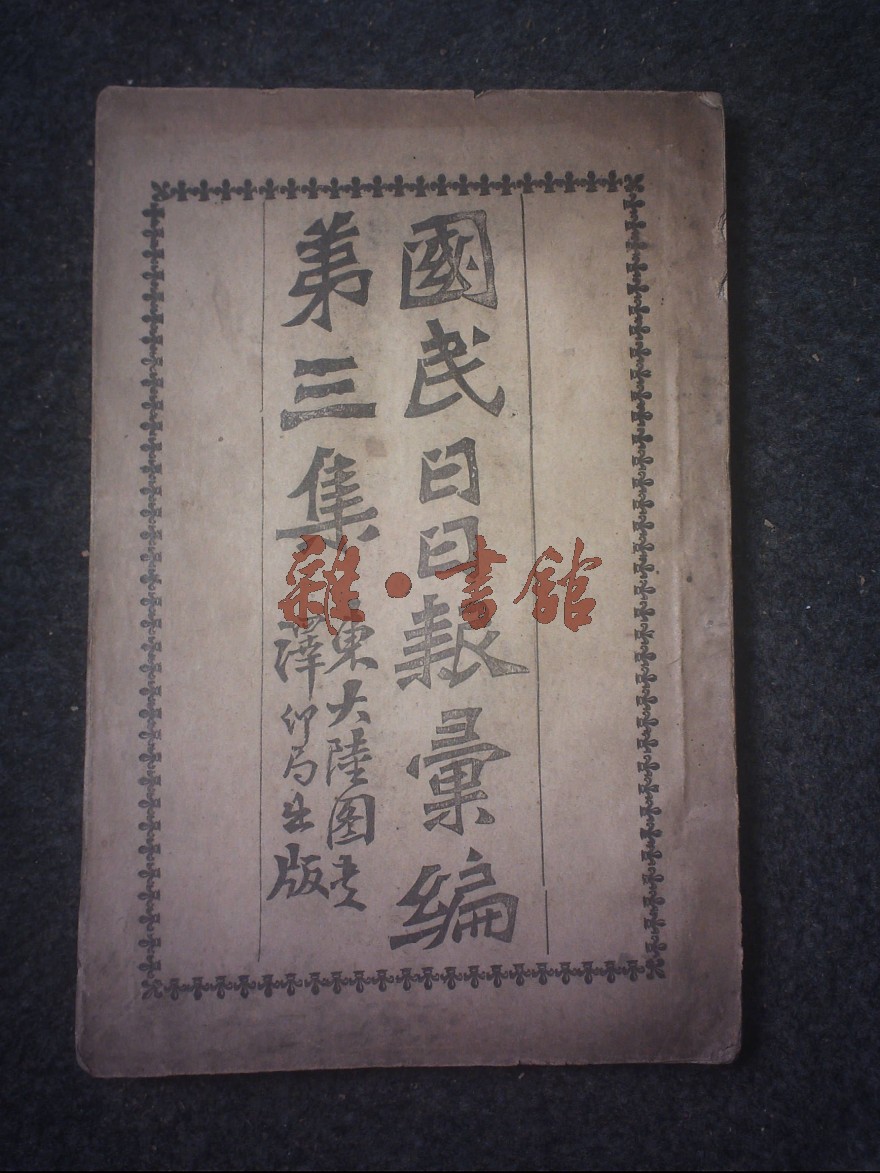 國民日日報彙編
第三集
東大陸图书
譯印局出版
雜·書館